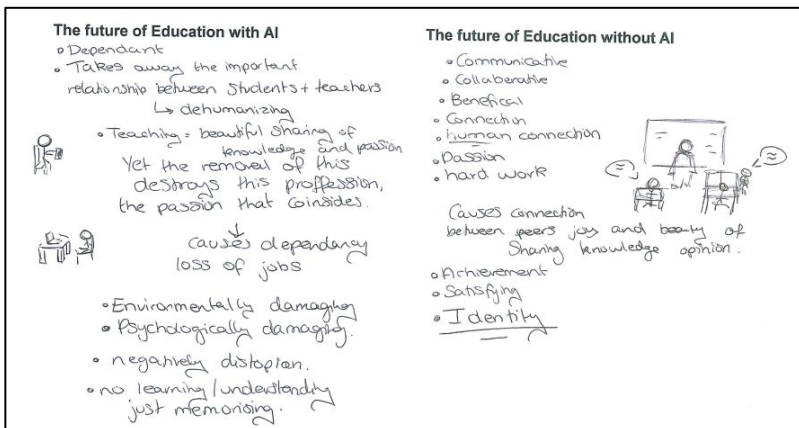 The future of Education with AI
• Dependant
• Takes away the important
relationship between students + teachers
↳ dehumanizing
• Teaching = beautiful sharing of
knowledge and passion
Yet the removal of this
destroys this proffession,
the passion that coinsides.
↓
causes dependancy
loss of jobs
• Environmentally damaging
• Psychologically damaging.
• negatively distopian.
• no learning/understanding
just memorising.
The future of Education without AI
• Communicative
• Collaberative
• Benefical
• Connection
• human connection
• Passion
• hard work
Causes connection
between peers joy and beauty of
Sharing knowledge opinion.
• Achievement
• Satisfying
• Identity